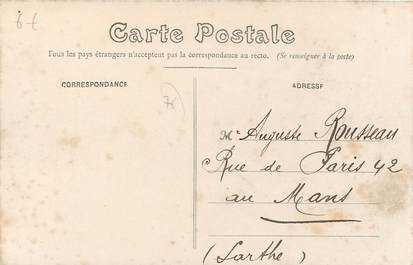 6 €
Carte Postale
Tous les pays étrangers n'acceptent pas la correspondance au recto. (Se renseigner à la poste)
CORRESPONDANCE
ADRESSE
Mr Auguste Rousseau
Rue de Paris 42
au Mans
(Sarthe)